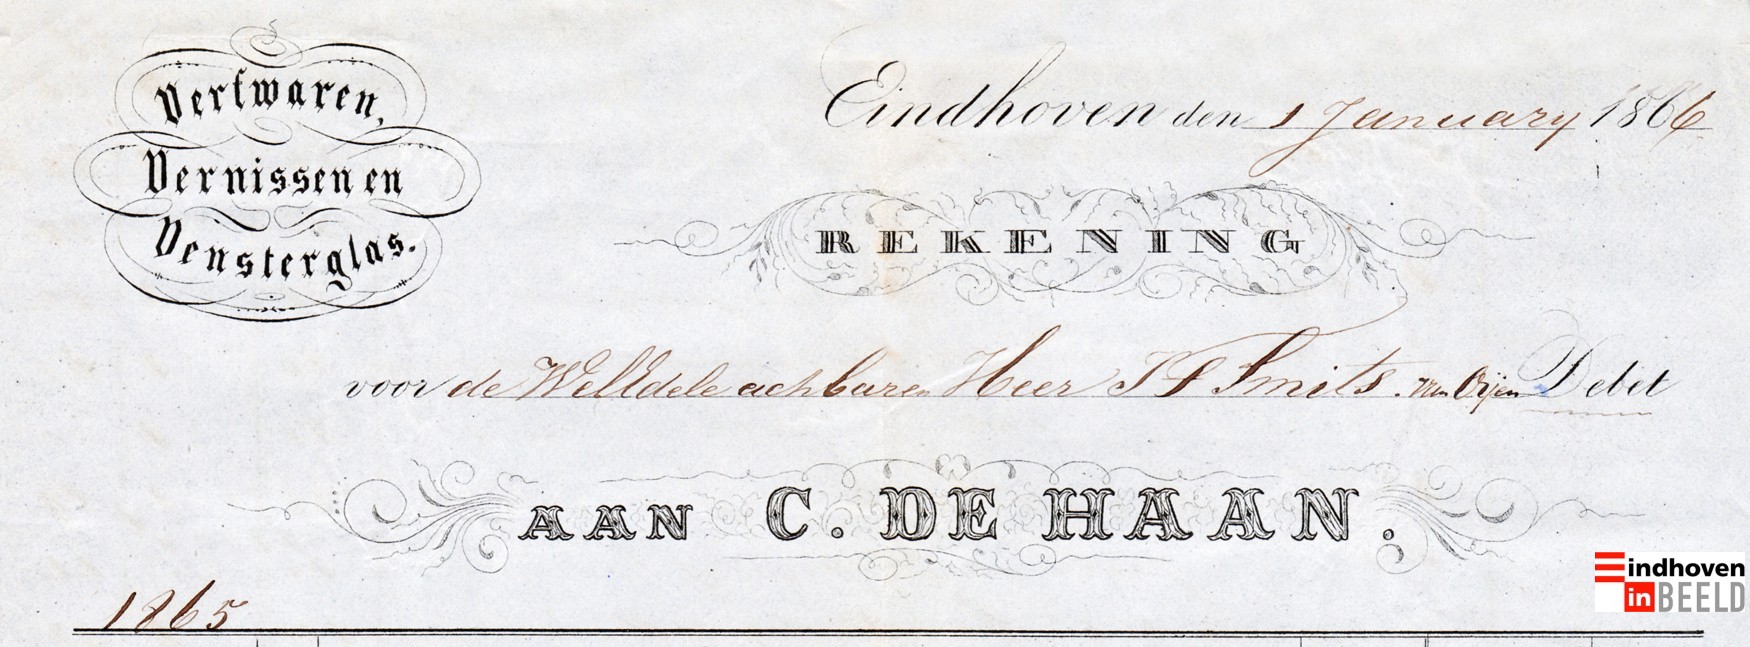 Verfwaren,
Vernissen en
Vensterglas.
Eindhoven den 1 January 1866
REKENING
voor de WelEdele achbaren Heer J F Smits. van Oyen Debet
AAN C. DE HAAN.
1865
Eindhoven
in BEELD